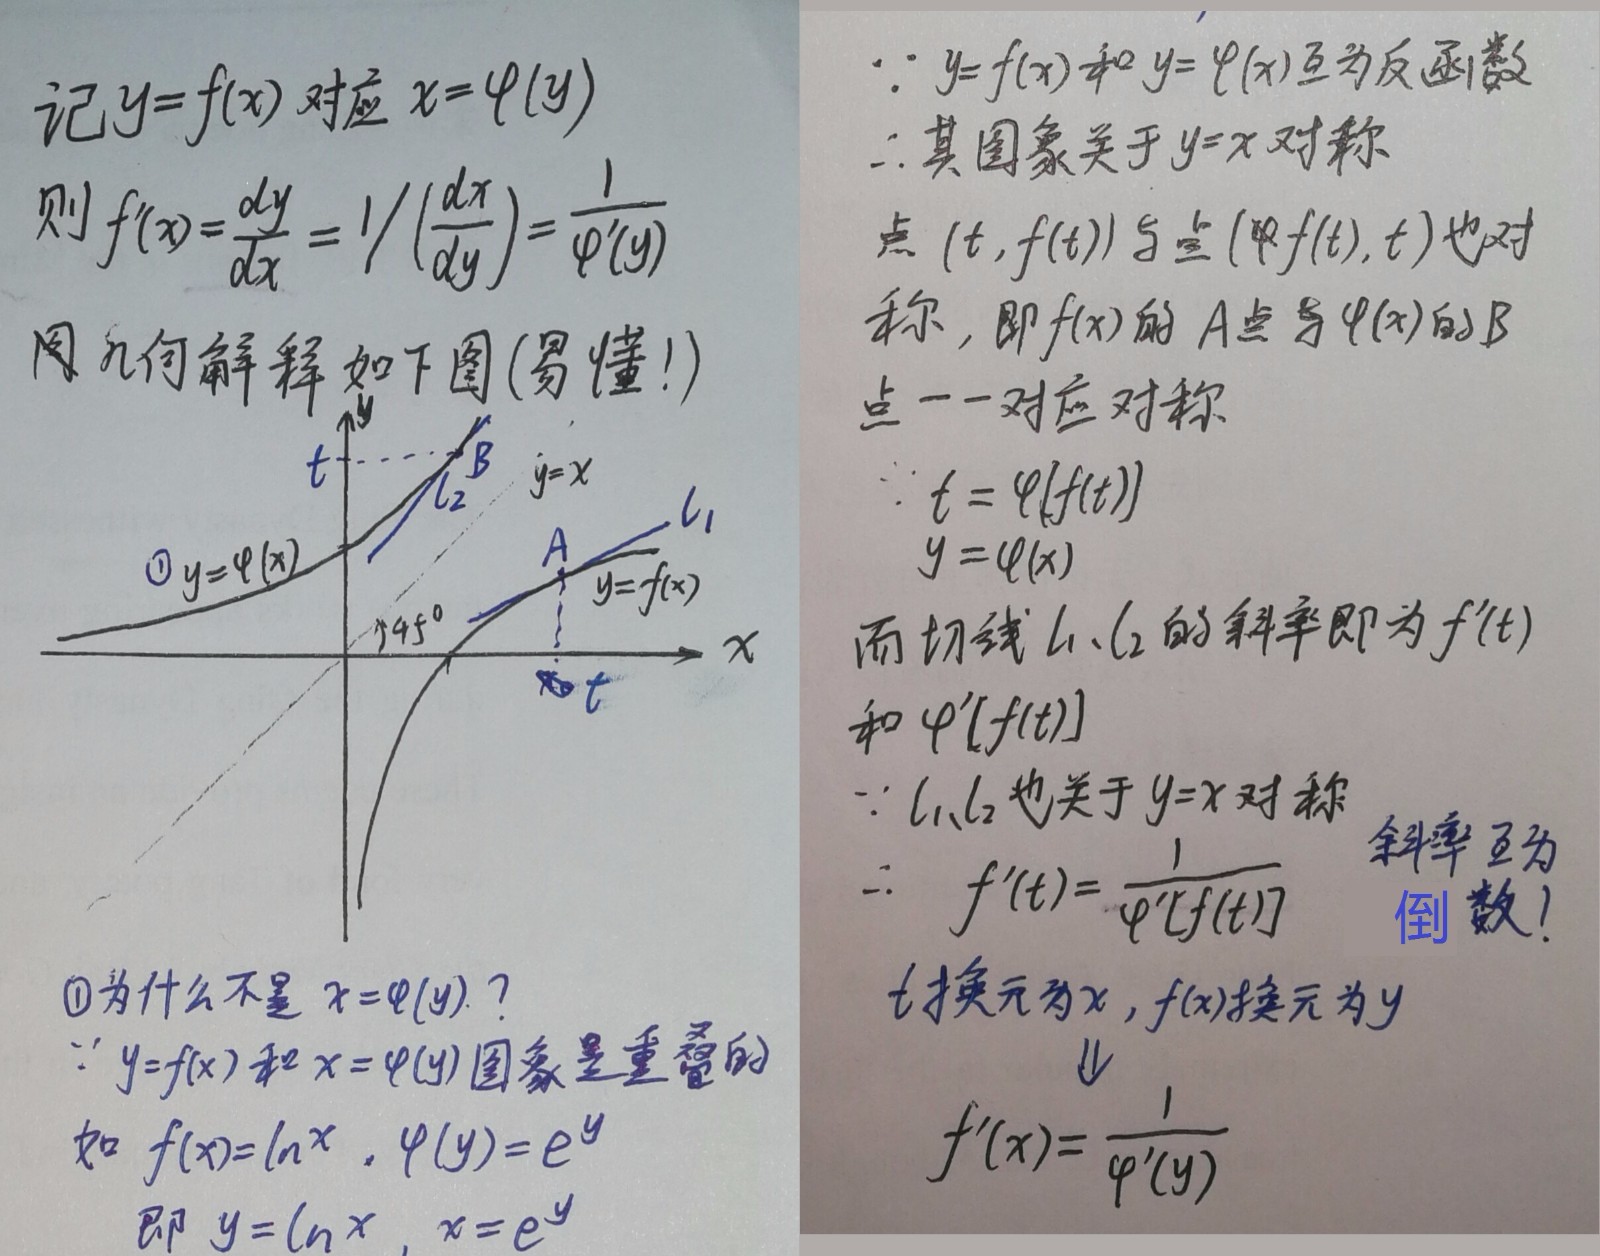 记 y=f(x) 对应 x=φ(y)
则 f'(x)=dy/dx=1/(dx/dy)=1/φ'(y)
用几何解释如下图(易懂!)
y
t
B
l₂
y=x
l₁
A
① y=φ(x)
y=f(x)
45°
x
t
①为什么不是 x=φ(y).?
∵ y=f(x) 和 x=φ(y) 图象是重叠的
如 f(x)=ln x . φ(y)=e^y
即 y=ln x , x=e^y
∵ y=f(x) 和 y=φ(x) 互为反函数
∴ 其图象关于 y=x 对称
点 (t, f(t)) 与点 (f(t), t) 也对
称, 即 f(x) 的 A点与 φ(x) 的 B
点一一对应对称
∵ t=φ[f(t)]
y=φ(x)
而切线 l₁、l₂ 的斜率即为 f'(t)
和 φ'[f(t)]
∵ l₁、l₂ 也关于 y=x 对称
斜率互为
倒数!
∴ f'(t)=1/φ'[f(t)]
t换元为x, f(x)换元为y
⇓
f'(x)=1/φ'(y)